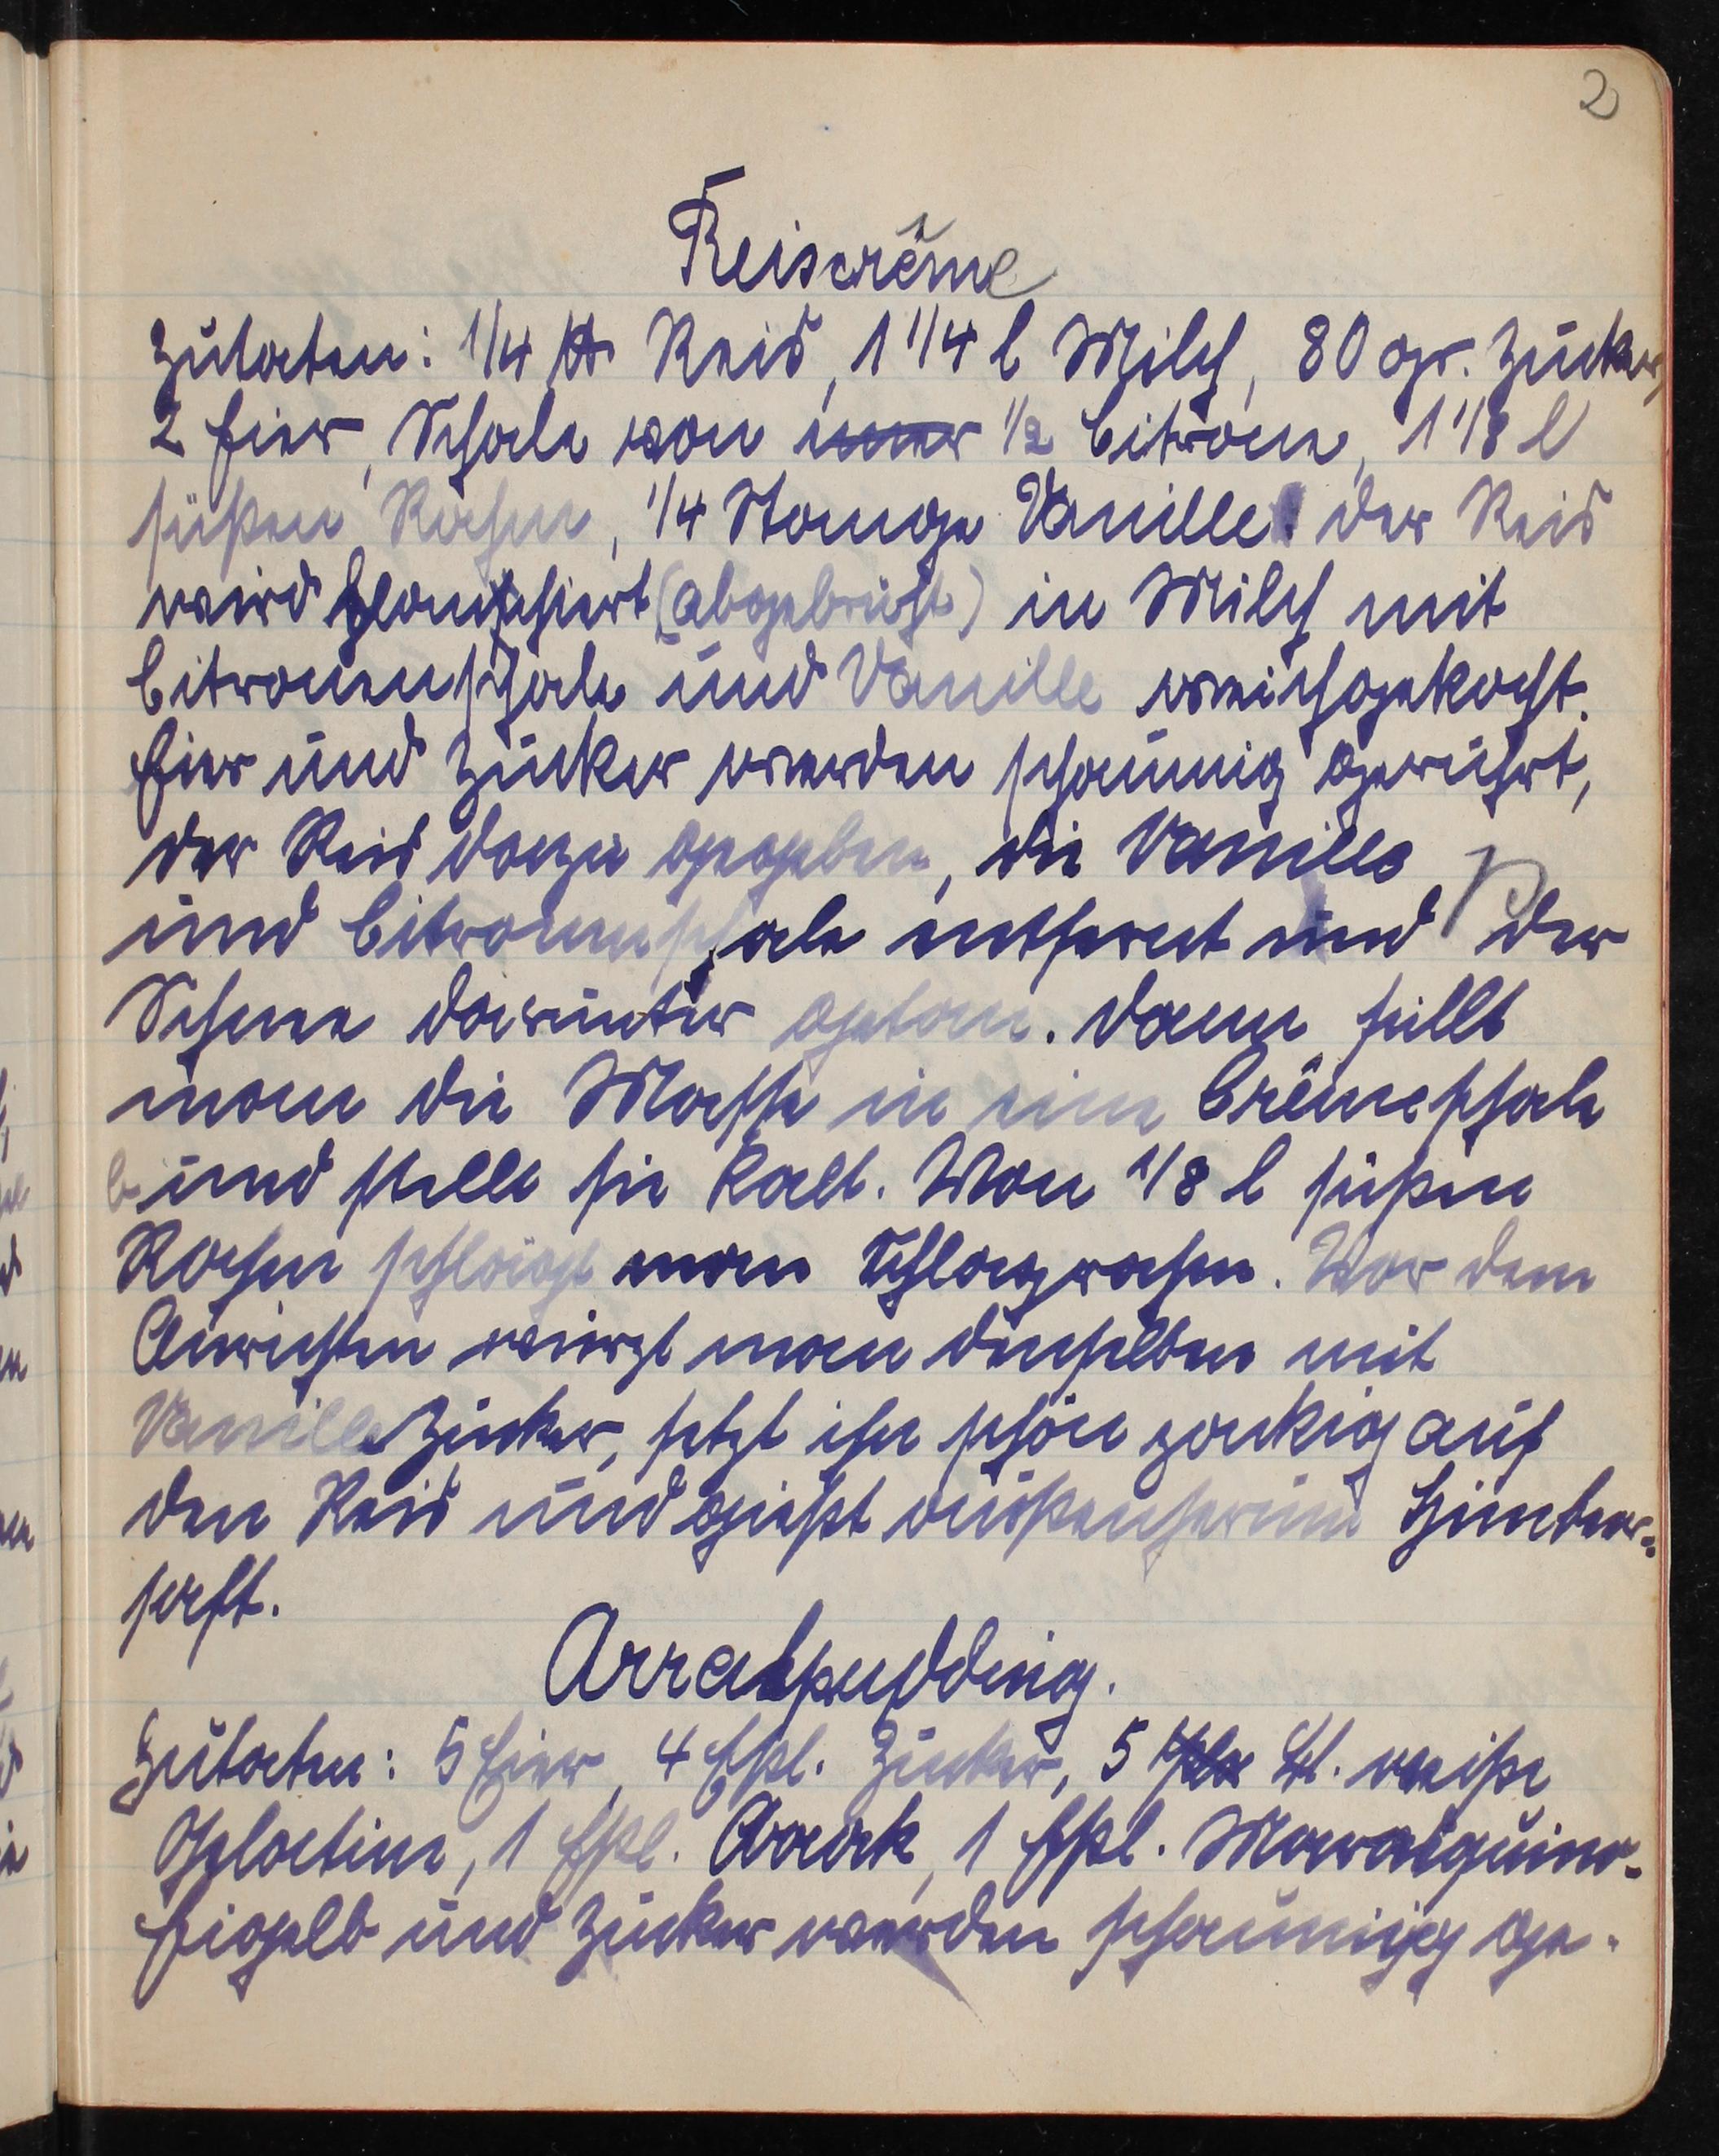 2
Reiscrême
Zutaten: 1/4 ℔ Reis, 1 1/4 l Milch, 80 gr. Zucker,
2 Eier, Schale von einer 1/2 Citrone, 1 1/8 l
süßen Rahm, 1/4 Stange Vanille. Der Reis
wird blanchiert (abgebrüht) in Milch mit
Citronenschale und Vanille weichgekocht.
Eier und Zucker werden schaumig gerührt,
der Reis dazu gegeben, die Vanille
und Citronenschale entfernt und der
Schnee darunter getan. Dann füllt
man die Masse in eine Crêmeschale
und stellt sie kalt. Von 1/8 l süßen
Rahm schlägt man Schlagrahm. Vor dem
Anrichten würzt man denselben mit
Vanillezucker, setzt ihn schön zackig auf
den Reis und gießt außenherum Himbeer-
saft.
Arrakpudding.
Zutaten: 5 Eier, 4 Eßl. Zucker, 5 Bl. weiße
Gelatine, 1 Eßl. Arrak, 1 Eßl. Marasquino.
Eigelb und Zucker werden schaumig ge-